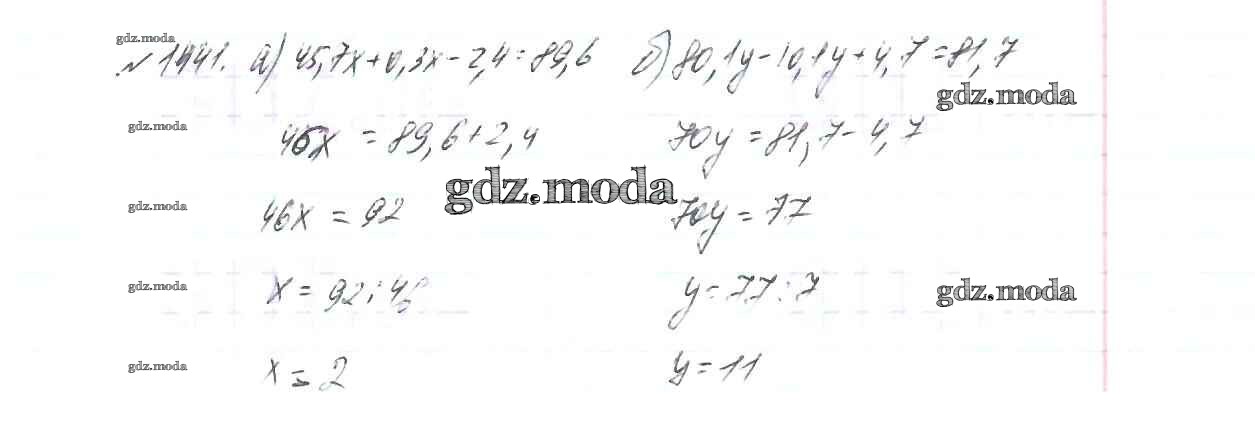 gdz.moda
№ 1441. а) 45,7x+0,3x-2,4=89,6 б) 80,1y-10,1y+4,7=81,7
gdz.moda
gdz.moda 46x = 89,6+2,4 70y = 81,7-4,7
gdz.moda
gdz.moda 46x = 92 70y = 77
gdz.moda x = 92:46 y = 77:7 gdz.moda
gdz.moda x = 2 y = 11